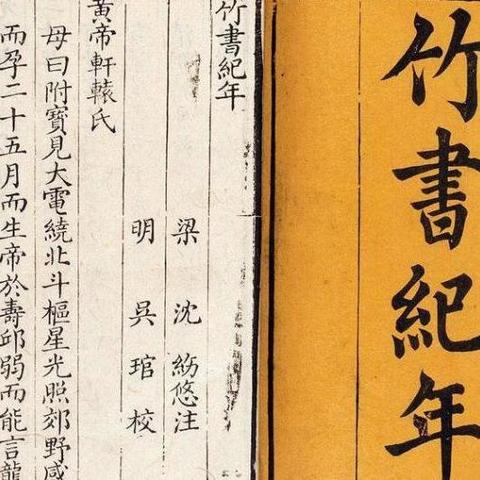 竹書紀年
竹書紀年
梁 沈 悠注
明 吳 琯 校
黃帝軒轅氏
母曰附寶見大電繞北斗樞星光照郊野感
而孕二十五月而生帝於壽邱弱而能言龍